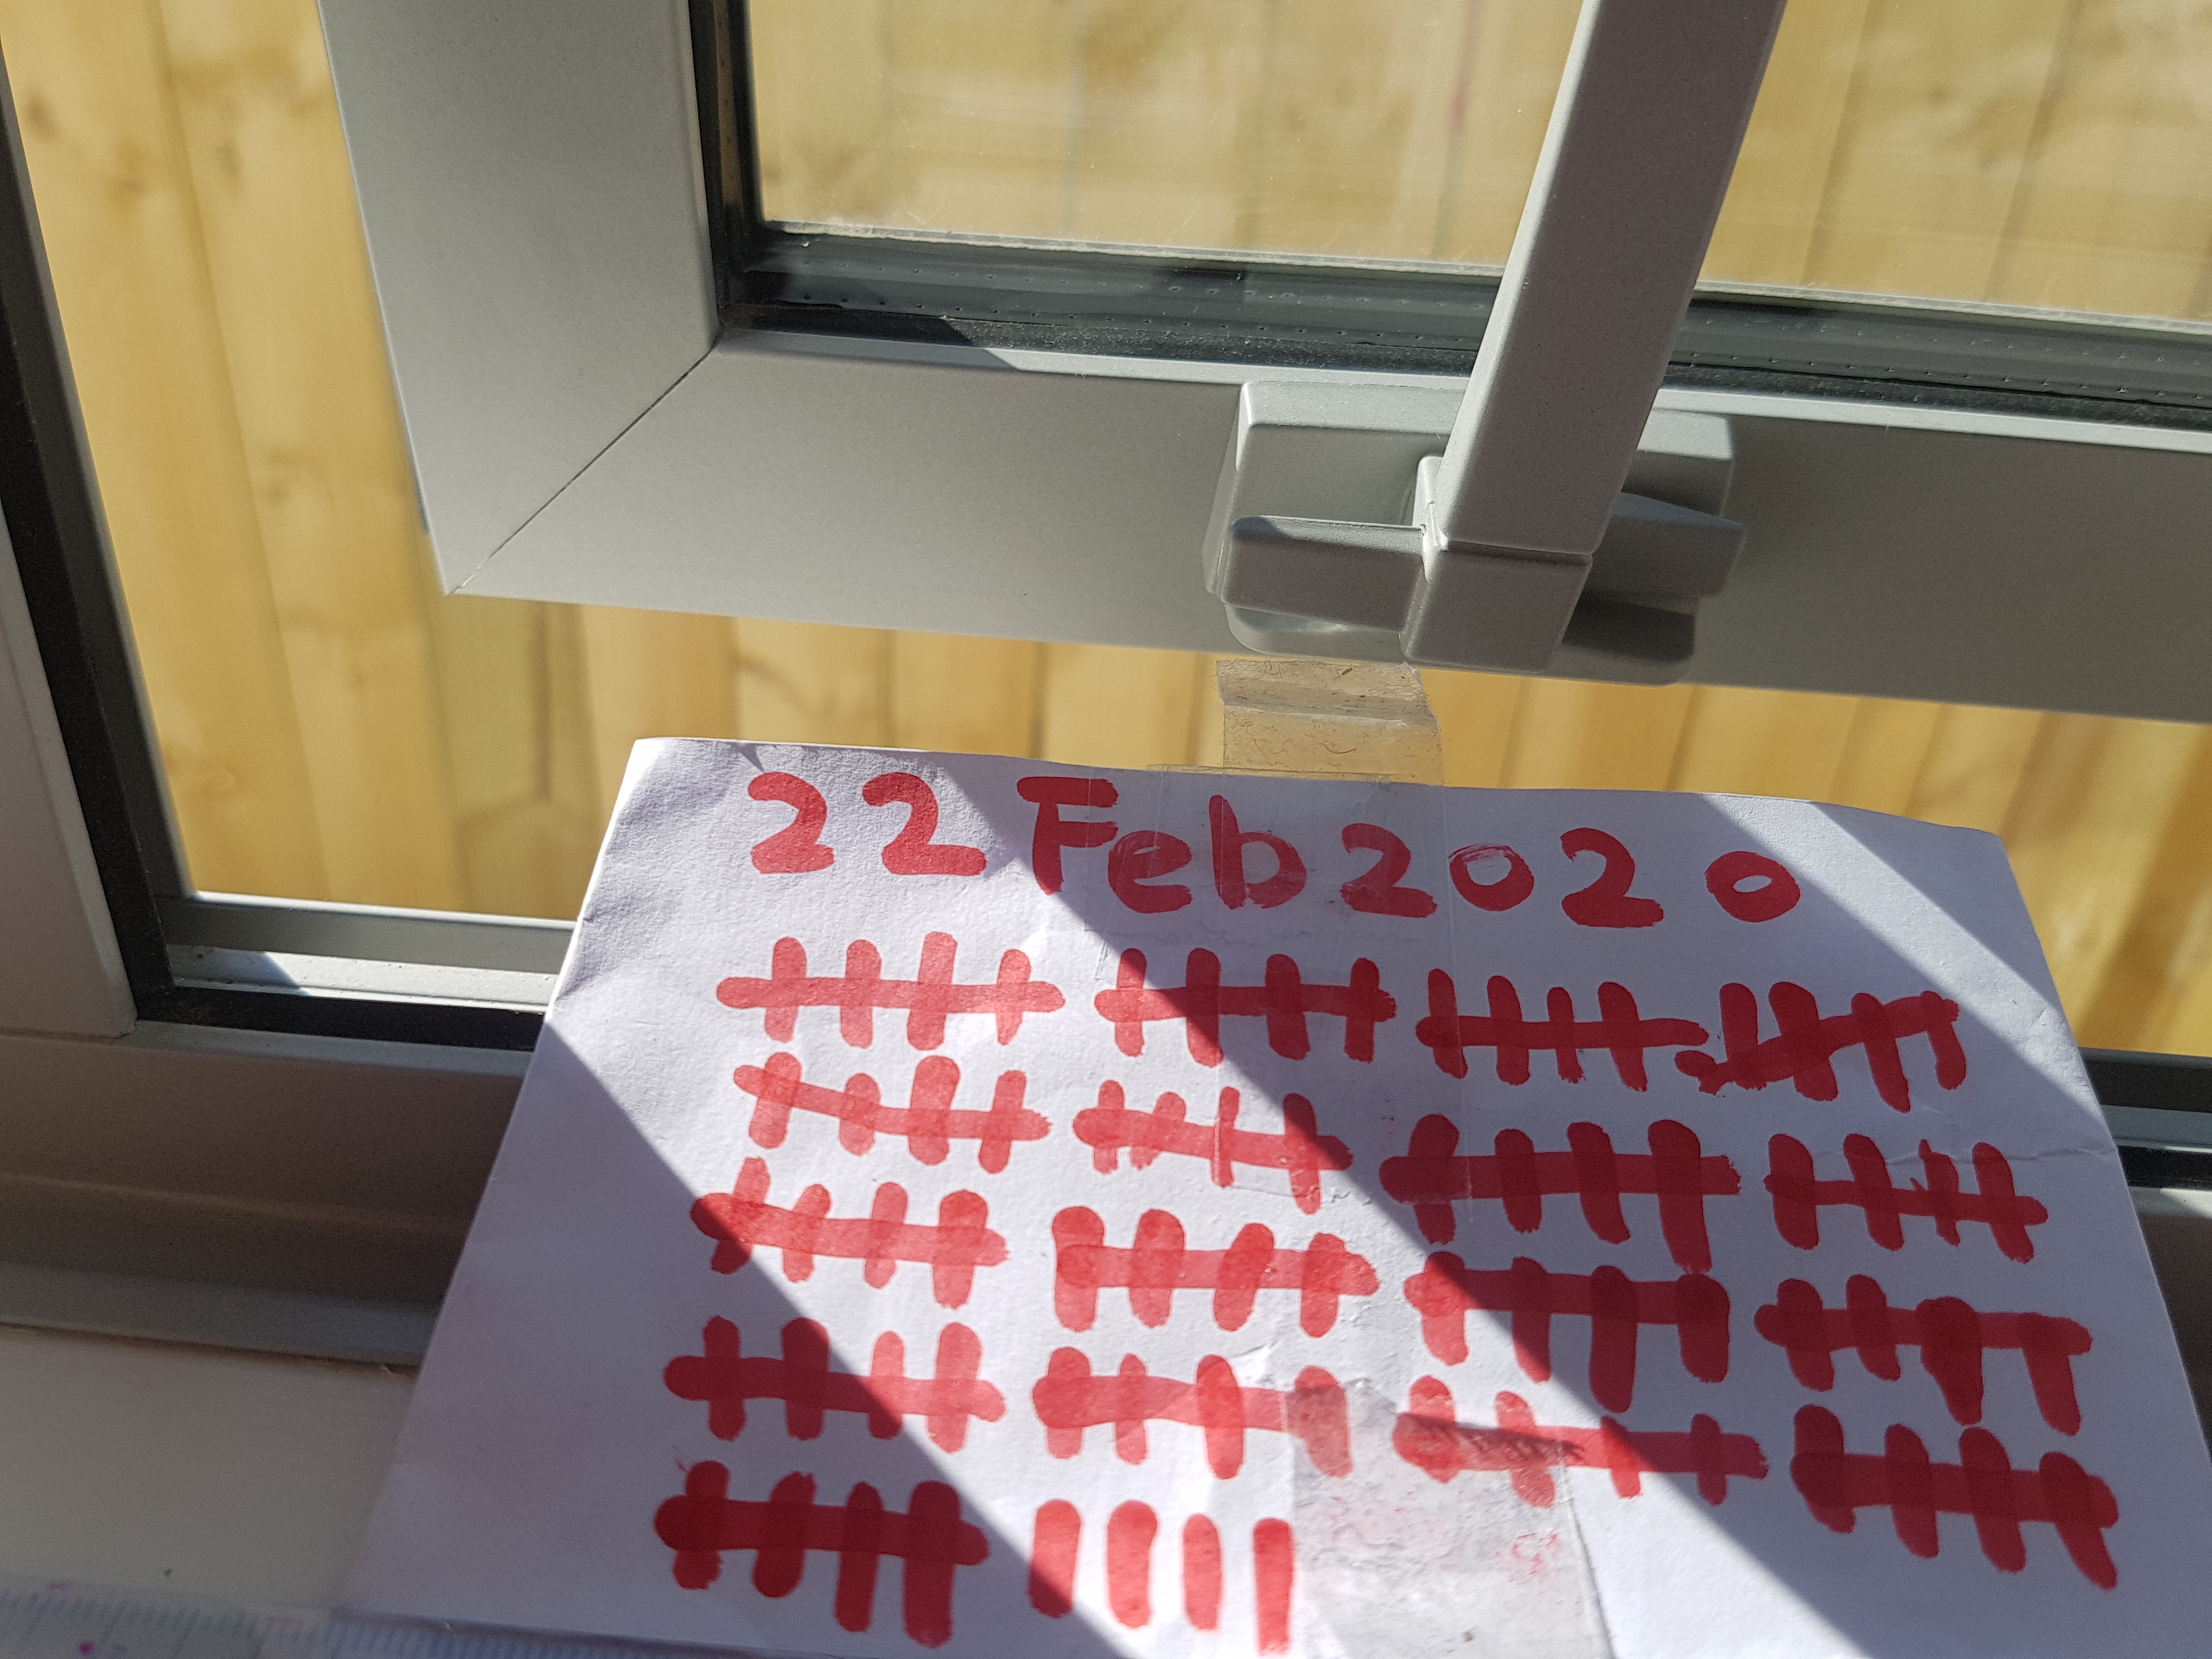 22 Feb 2020